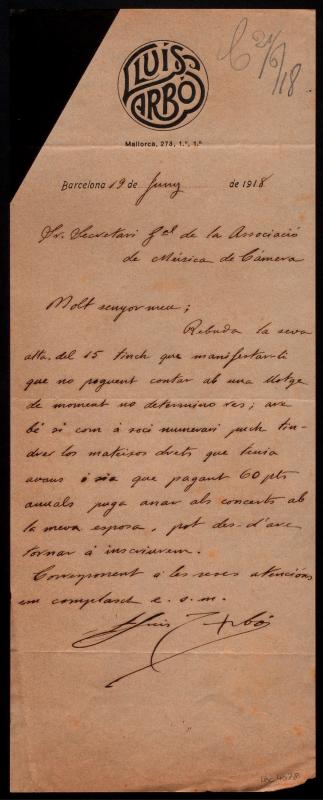 C 21/6/18
LLUÍS
ARBÓ
Mallorca, 273, 1.º, 1.ª
Barcelona 19 de Juny de 1918
Sr. Secretari Gal de la Associació
de Música de Cámera
Molt senyor meu;
Rebuda la seva
atta. del 15 tinch que manifestar-li
que no poguent contar ab una llotge
de moment no determino res; are
bé si com à soci numerari puch tin-
drer los mateixos drets que tenia
avans ó sia que pagant 60 pts
anuals puga anar als concerts ab
la meva esposa, pot des-d'are
tornar à inscriurem.
Corresponent à les seves atencións
em complasch e. s. m.
Lluis Arbó